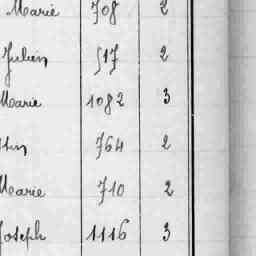 Marie 708 2
Julien 517 2
Marie 1082 3
764 2
Marie 710 2
Joseph 1116 3